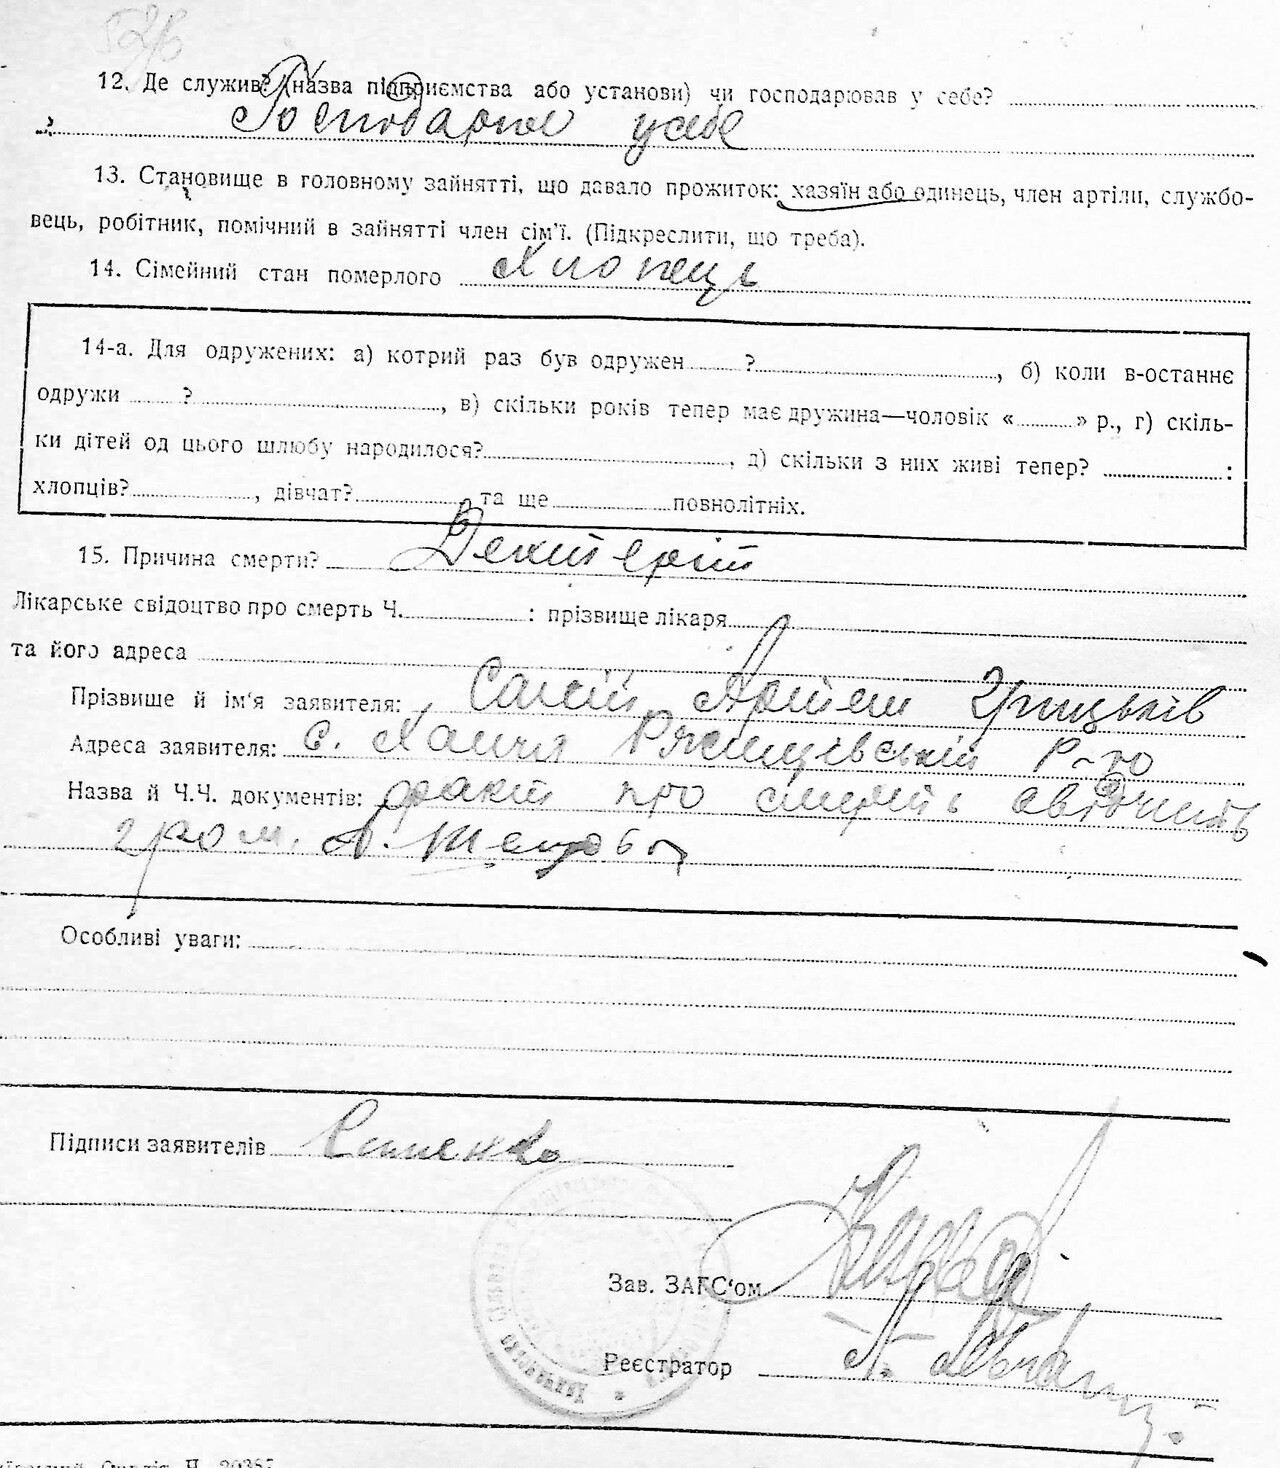 12. Де служив? (назва підприємства або установи) чи господарював у себе?
Господарює у себе
13. Становище в головному зайнятті, що давало прожиток: хазяїн або одинець, член артіли, службо-
вець, робітник, помічний в зайнятті член сім'ї. (Підкреслити, що треба).
14. Сімейний стан померлого Хлопець
14-а. Для одружених: а) котрий раз був одружен ?, б) коли в-останнє
одружи ?, в) скільки років тепер має дружина—чоловік « » р., г) скіль-
ки дітей од цього шлюбу народилося?, д) скільки з них живі тепер? :
хлопців?, дівчат?, та ще повнолітніх.
15. Причина смерти?
Лікарське свідоцтво про смерть Ч. : прізвище лікаря
та його адреса
Прізвище й ім'я заявителя: Артем Грицьків
Адреса заявителя: с. Ржищівській Р-ну
Назва й Ч.Ч. документів: факт про смерть свідчить
гром.
Особливі уваги:
Підписи заявителів
Зав. ЗАГС'ом
Реєстратор
Ч. 20387